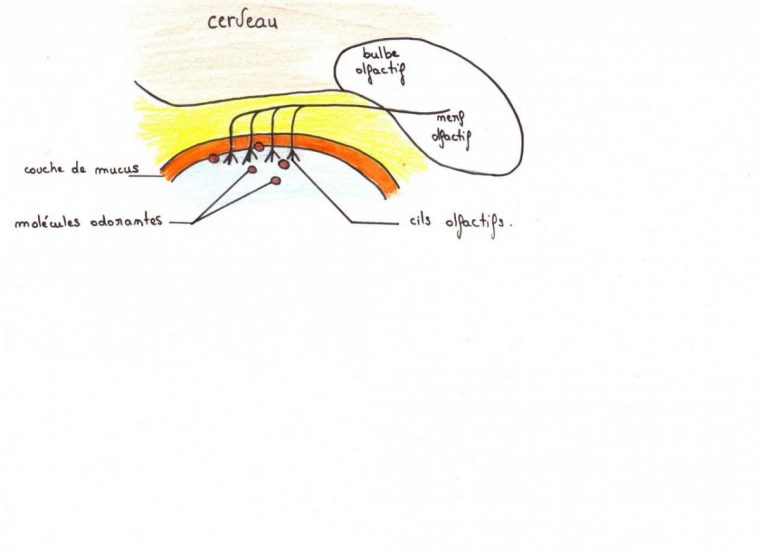 cerveau
bulbe
olfactif
nerf
olfactif
couche de mucus
molécules odorantes
cils olfactifs.